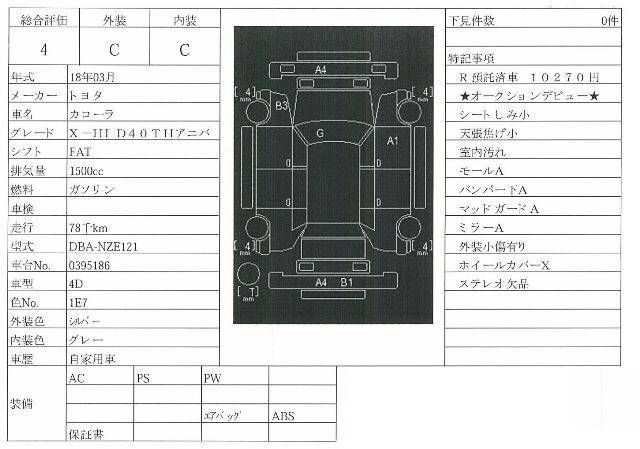 総合評価 外装 内装
4 C C
年式 18年03月
メーカー トヨタ
車名 カローラ
グレード X-HI D40THアニバ
シフト FAT
排気量 1500cc
燃料 ガソリン
車検
走行 78千km
型式 DBA-NZE121
車台No. 0395186
車型 4D
色No. 1E7
外装色 シルバー
内装色 グレー
車歴 自家用車
装備 AC PS PW
エアバッグ ABS
保証書
A4
[ 4 ] mm
[ 4 ] mm
B3
G
A1
[ 4 ] mm
[ 4 ] mm
[ T ] mm
A4 B1
下見件数 0件
特記事項
R預託済車 10270円
★オークションデビュー★
シートしみ小
天張焦げ小
室内汚れ
モールA
バンパードA
マッドガードA
ミラーA
外装小傷有り
ホイールカバーX
ステレオ欠品